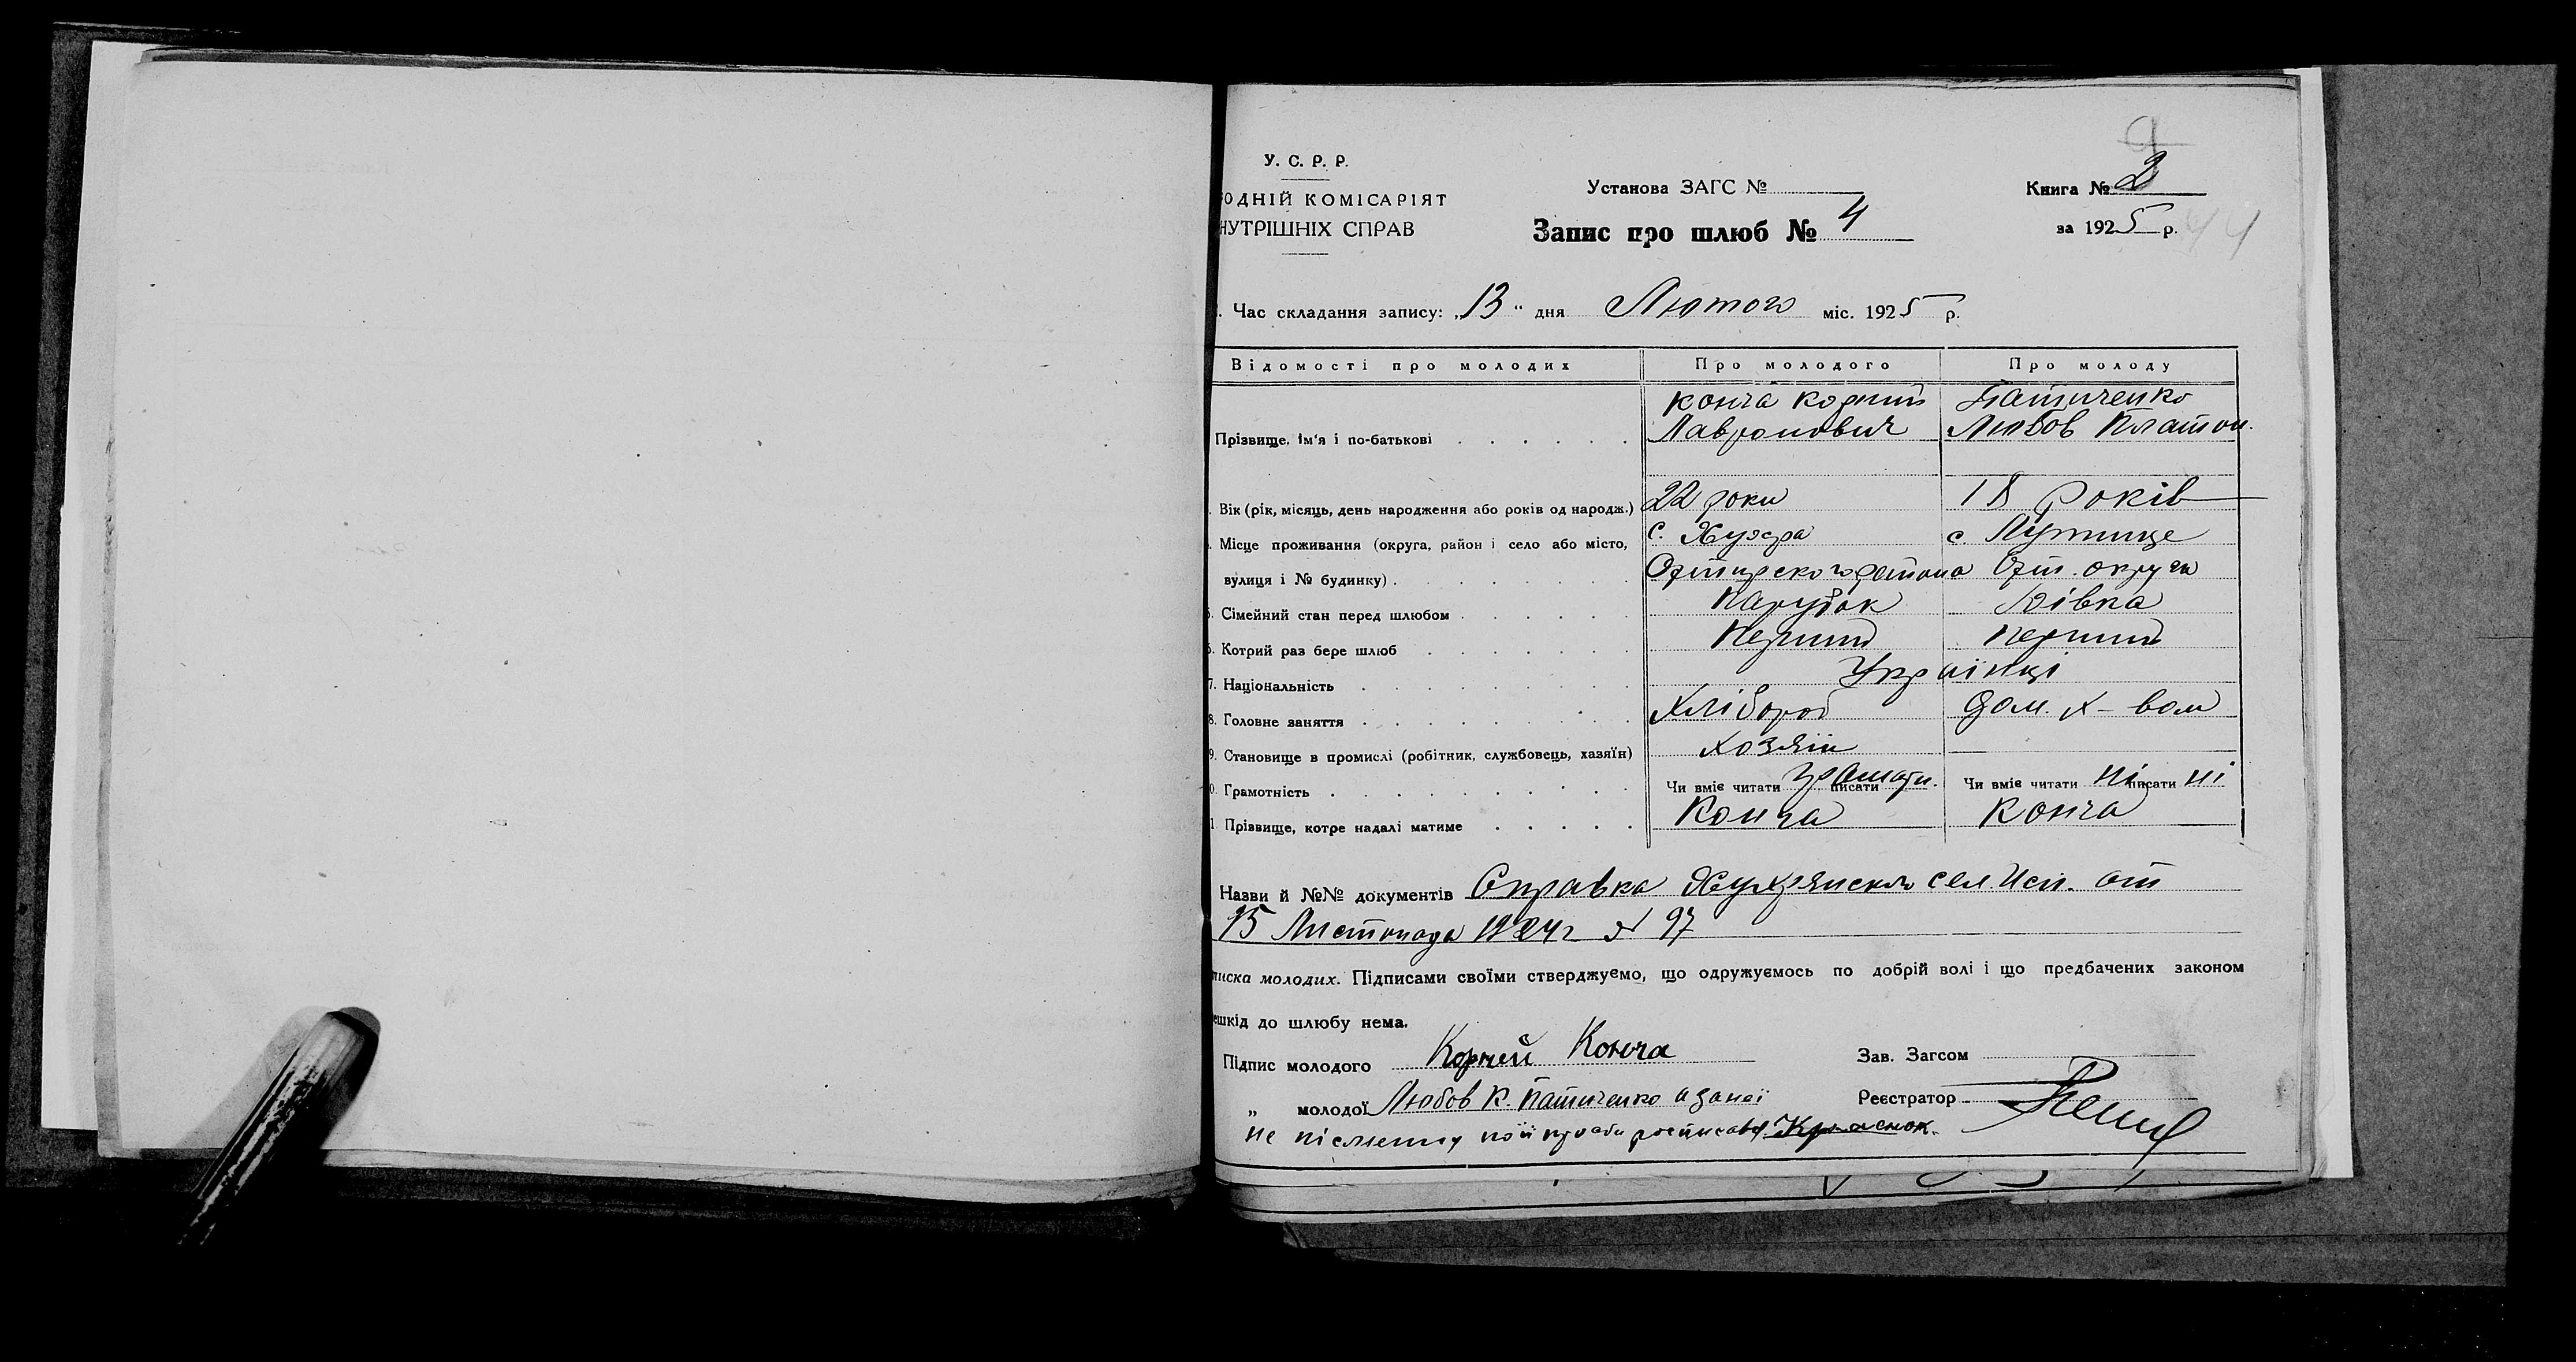 У. С. Р. Р.
ОДНІЙ КОМІСАРІЯТ
НУТРІШНІХ СПРАВ
Установа ЗАГС №
Запис про шлюб № 4
Книга № 2
за 1925 р. 44
Час складання запису: „13“ дня Лютого міс. 1925 р.
Відомості про молодих Про молодого Про молоду
Прізвище, ім'я і по-батькові
Конча Корний Лавронович
Патиченко Любов Платон.
Вік (рік, місяць, день народження або років од народж.) 22 роки 18 років
Місце проживання (округа, район і село або місто, с. Хухра с. Лутище
вулиця і № будинку) района Охт. округи
Сімейний стан перед шлюбом Парубок Дівка
Котрий раз бере шлюб Перший Перший
7. Національність Українці
8. Головне заняття Хлібороб Дом. х-вом
9. Становище в промислі (робітник, службовець, хазяїн) Хозяін
0. Грамотність Чи вміє читати писати Чи вміє читати ні писати ні
1. Прізвище, котре надалі матиме Конча Конча
Назви й №№ документів Справка Хухрянского сел. Исп. от
15 Листопада 1924 г № 97
писка молодих. Підписами своїми стверджуємо, що одружуємось по добрій волі і що предбачених законом
ешкід до шлюбу нема.
Підпис молодого Корней Конча
Зав. Загсом
„ молодої Любов К. Патиченко а за неї
Реєстратор
не письменну по її прозьби росписався